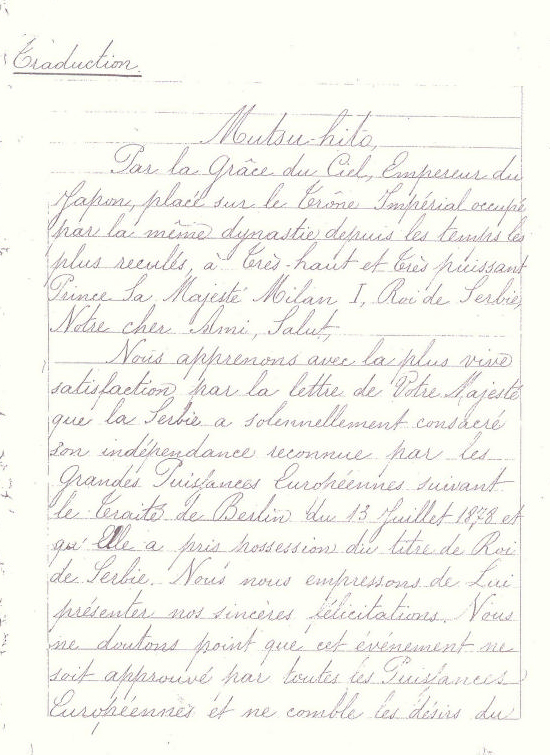 Traduction.
Mutsu-hito,
Par la Grâce du Ciel, Empereur du
Japon, placé sur le Trône Impérial occupé
par la même dynastie depuis les temps les
plus reculés, à Très-haut et Très puissant
Prince Sa Majesté Milan I, Roi de Serbie,
Notre cher Ami, Salut,
Nous apprenons avec la plus vive
satisfaction par la lettre de Votre Majesté
que la Serbie a solennellement consacré
son indépendance reconnue par les
Grandes Puissances Européennes suivant
le Traité de Berlin du 13 Juillet 1878 et
qu' Elle a pris possession du titre de Roi
de Serbie. Nous nous empressons de Lui
présenter nos sincères félicitations. Nous
ne doutons point que cet événement ne
soit approuvé par toutes les Puissances
Européennes et ne comble les désirs du